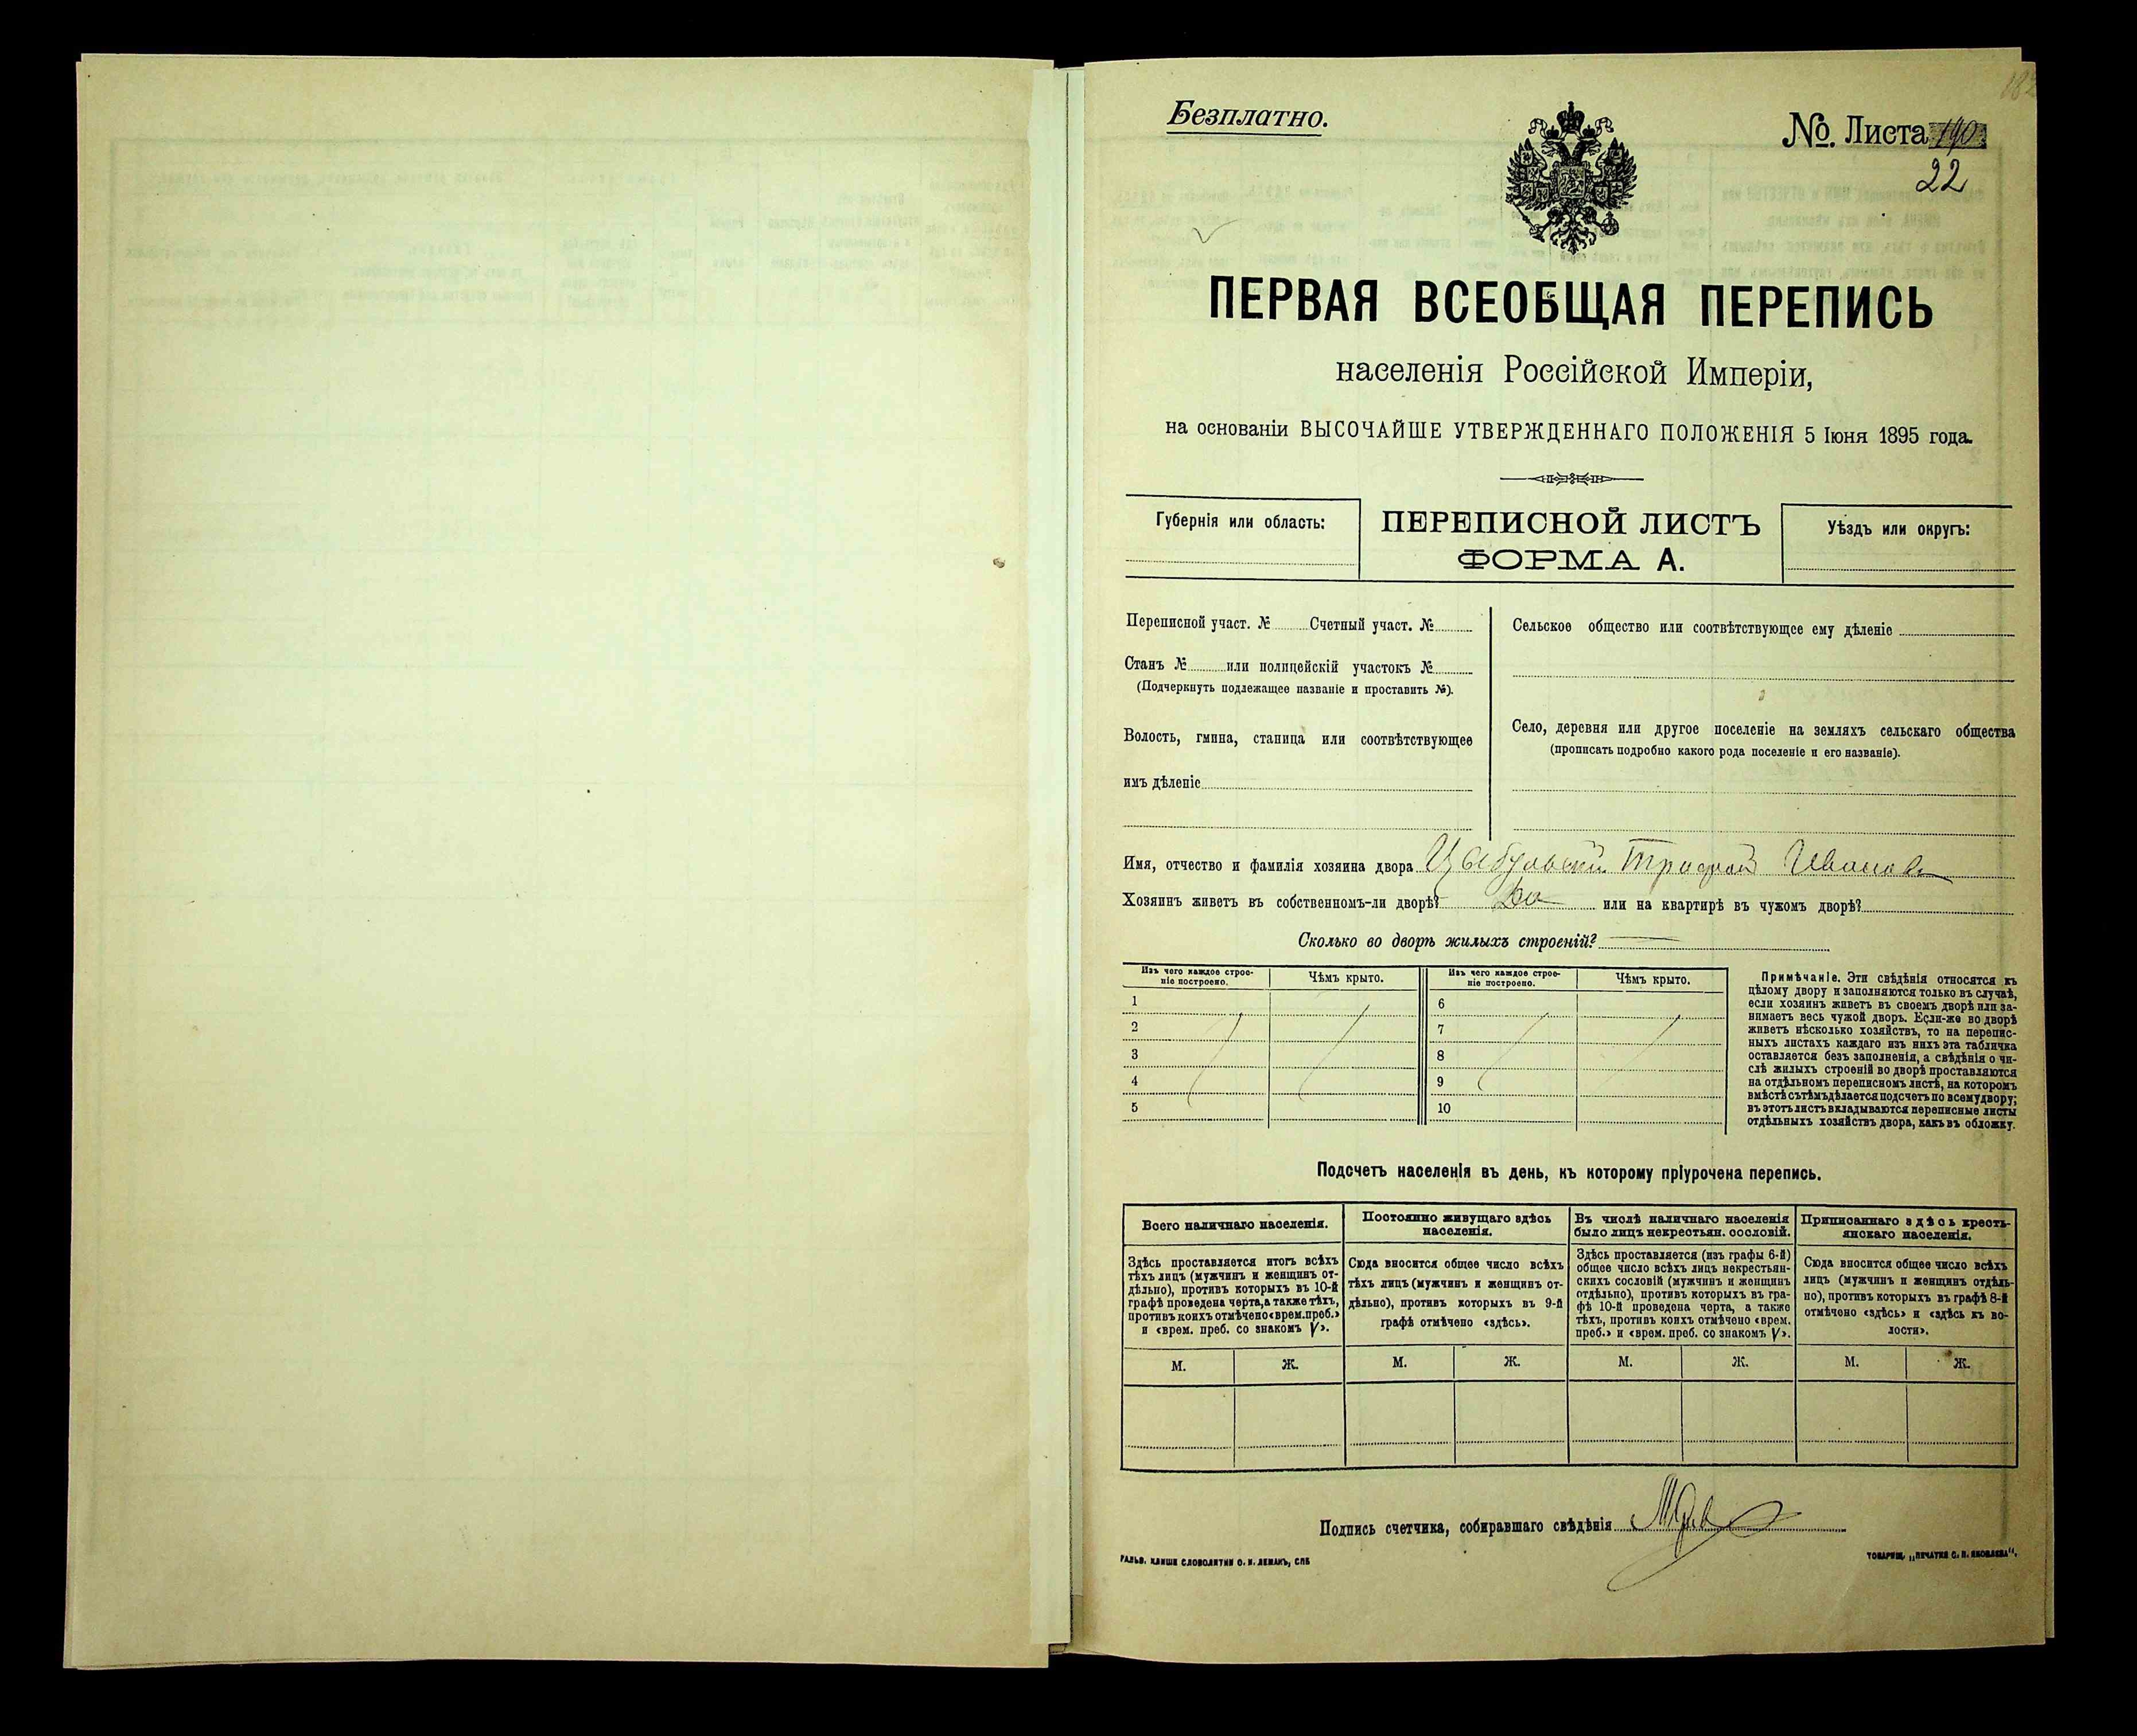 Безплатно.
№. Листа 190
22
ПЕРВАЯ ВСЕОБЩАЯ ПЕРЕПИСЬ
населенія Россійской Имперіи,
на основаніи ВЫСОЧАЙШЕ УТВЕРЖДЕННАГО ПОЛОЖЕНІЯ 5 Іюня 1895 года.
Губернія или область:
ПЕРЕПИСНОЙ ЛИСТЪ
ФОРМА А.
Уѣздъ или округъ:
Переписной участ. № Счетный участ. №
Станъ № или полицейскій участокъ №
(Подчеркнуть подлежащее названіе и проставить №).
Волость, гмина, станица или соотвѣтствующее
имъ дѣленіе
Сельское общество или соотвѣтствующее ему дѣленіе
Село, деревня или другое поселеніе на земляхъ сельскаго общества
(прописать подробно какого рода поселеніе и его названіе).
Имя, отчество и фамилія хозяина двора Цыбульский Трофим Иванов
Хозяинъ живетъ въ собственномъ-ли дворѣ? Да или на квартирѣ въ чужомъ дворѣ?
Сколько во дворѣ жилыхъ строеній?
Изъ чего каждое строе-
ніе построено.
Чѣмъ крыто.
Изъ чего каждое строе-
ніе построено.
Чѣмъ крыто.
1 6
2 7
3 8
4 9
5 10
Примѣчаніе. Эти свѣдѣнія относятся къ
цѣлому двору и заполняются только въ случаѣ,
если хозяинъ живетъ въ своемъ дворѣ или за-
нимаетъ весь чужой дворъ. Если-же во дворѣ
живетъ нѣсколько хозяйствъ, то на перепис-
ныхъ листахъ каждаго изъ нихъ эта табличка
оставляется безъ заполненія, а свѣдѣнія о чи-
слѣ жилыхъ строеній во дворѣ проставляются
на отдѣльномъ переписномъ листѣ, на которомъ
вмѣстѣ съ тѣмъ дѣлается подсчетъ по всему двору;
въ этотъ листъ вкладываются переписные листы
отдѣльныхъ хозяйствъ двора, какъ въ обложку.
Подсчетъ населенія въ день, къ которому пріурочена перепись.
Всего наличнаго населенія.
Здѣсь проставляется итогъ всѣхъ
тѣхъ лицъ (мужчинъ и женщинъ от-
дѣльно), противъ которыхъ въ 10-й
графѣ проведена черта, а также тѣхъ,
противъ коихъ отмѣчено «врем. преб.»
и «врем. преб. со знакомъ V».
Постоянно живущаго здѣсь
населенія.
Сюда вносится общее число всѣхъ
тѣхъ лицъ (мужчинъ и женщинъ от-
дѣльно), противъ которыхъ въ 9-й
графѣ отмѣчено «здѣсь».
Въ числѣ наличнаго населенія
было лицъ некрестьян. сословій.
Здѣсь проставляется (изъ графы 6-й)
общее число всѣхъ лицъ некрестьян-
скихъ сословій (мужчинъ и женщинъ
отдѣльно), противъ которыхъ въ гра-
фѣ 10-й проведена черта, а также
тѣхъ, противъ коихъ отмѣчено «врем.
преб.» и «врем. преб. со знакомъ V».
Приписаннаго здѣсь кресть-
янскаго населенія.
Сюда вносится общее число всѣхъ
лицъ (мужчинъ и женщинъ отдѣль-
но), противъ которыхъ въ графѣ 8-й
отмѣчено «здѣсь» и «здѣсь къ во-
лости».
М. Ж. М. Ж. М. Ж. М. Ж.
Подпись счетчика, собиравшаго свѣдѣнія
ГАЛЬВ. КЛИШЕ СЛОВОЛИТНИ О. И. ЛЕМАНЪ, СПБ
ТОВАРИЩ. „ПЕЧАТНЯ С. П. ЯКОВЛЕВА“.